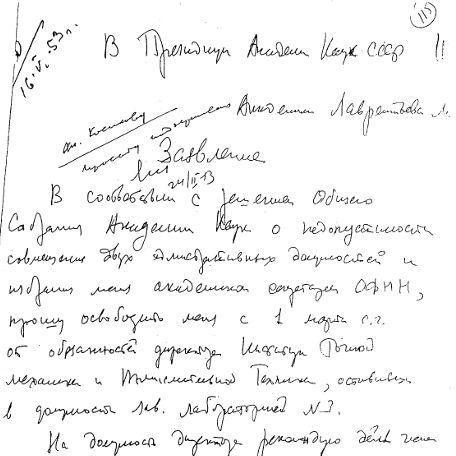 115
16.V.53 г.
В Президиум Академии Наук СССР
Академика Лаврентьева М.
Заявление
24/II 53
В соответствии с решением Общего
Собрания Академии Наук о недопустимости
совмещения двух административных должностей и
избрания меня академиком секретарем ОФМН,
прошу освободить меня с 1 марта с.г.
от обязанностей директора Института Точной
механики и Вычислительной Техники, оставив
в должности зав. лабораторией №1.
На должность директора рекомендую действ. члена